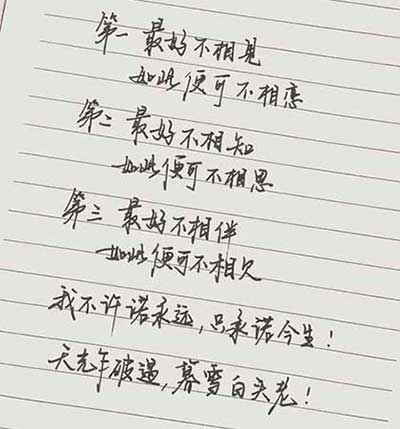 第一 最好不相見
如此便可不相恋
第二 最好不相知
如此便可不相思
第三 最好不相伴
如此便可不相欠
我不许诺永远,只承诺今生!
天光乍破遇,暮雪白头老!